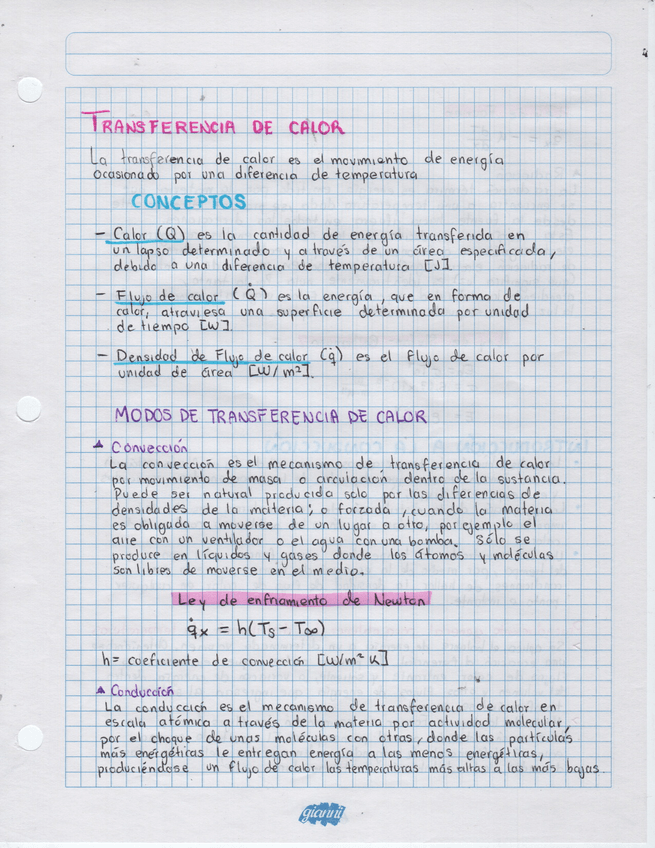 TRANSFERENCIA DE CALOR
La transferencia de calor es el movimiento de energía
ocasionado por una diferencia de temperatura
CONCEPTOS
– Calor (Q) es la cantidad de energía transferida en
un lapso determinado y a través de un área especificada,
debido a una diferencia de temperatura [J].
– Flujo de calor (Q̇) es la energía, que en forma de
calor, atraviesa una superficie determinada por unidad
de tiempo [W].
– Densidad de Flujo de calor (q̇) es el flujo de calor por
unidad de área [W/m²].
MODOS DE TRANSFERENCIA DE CALOR
▲ Convección
La convección es el mecanismo de transferencia de calor
por movimiento de masa o circulación dentro de la sustancia.
Puede ser natural producida solo por las diferencias de
densidades de la materia; o forzada, cuando la materia
es obligada a moverse de un lugar a otro, por ejemplo el
aire con un ventilador o el agua con una bomba. Sólo se
produce en líquidos y gases donde los átomos y moléculas
son libres de moverse en el medio.
Ley de enfriamiento de Newton
q̇x = h(Ts – T∞)
h = coeficiente de convección [W/m² K]
▲ Conducción
La conducción es el mecanismo de transferencia de calor en
escala atómica a través de la materia por actividad molecular,
por el choque de unas moléculas con otras, donde las partículas
más energéticas le entregan energía a las menos energéticas,
produciéndose un flujo de calor las temperaturas más altas a las más bajas.
gianni